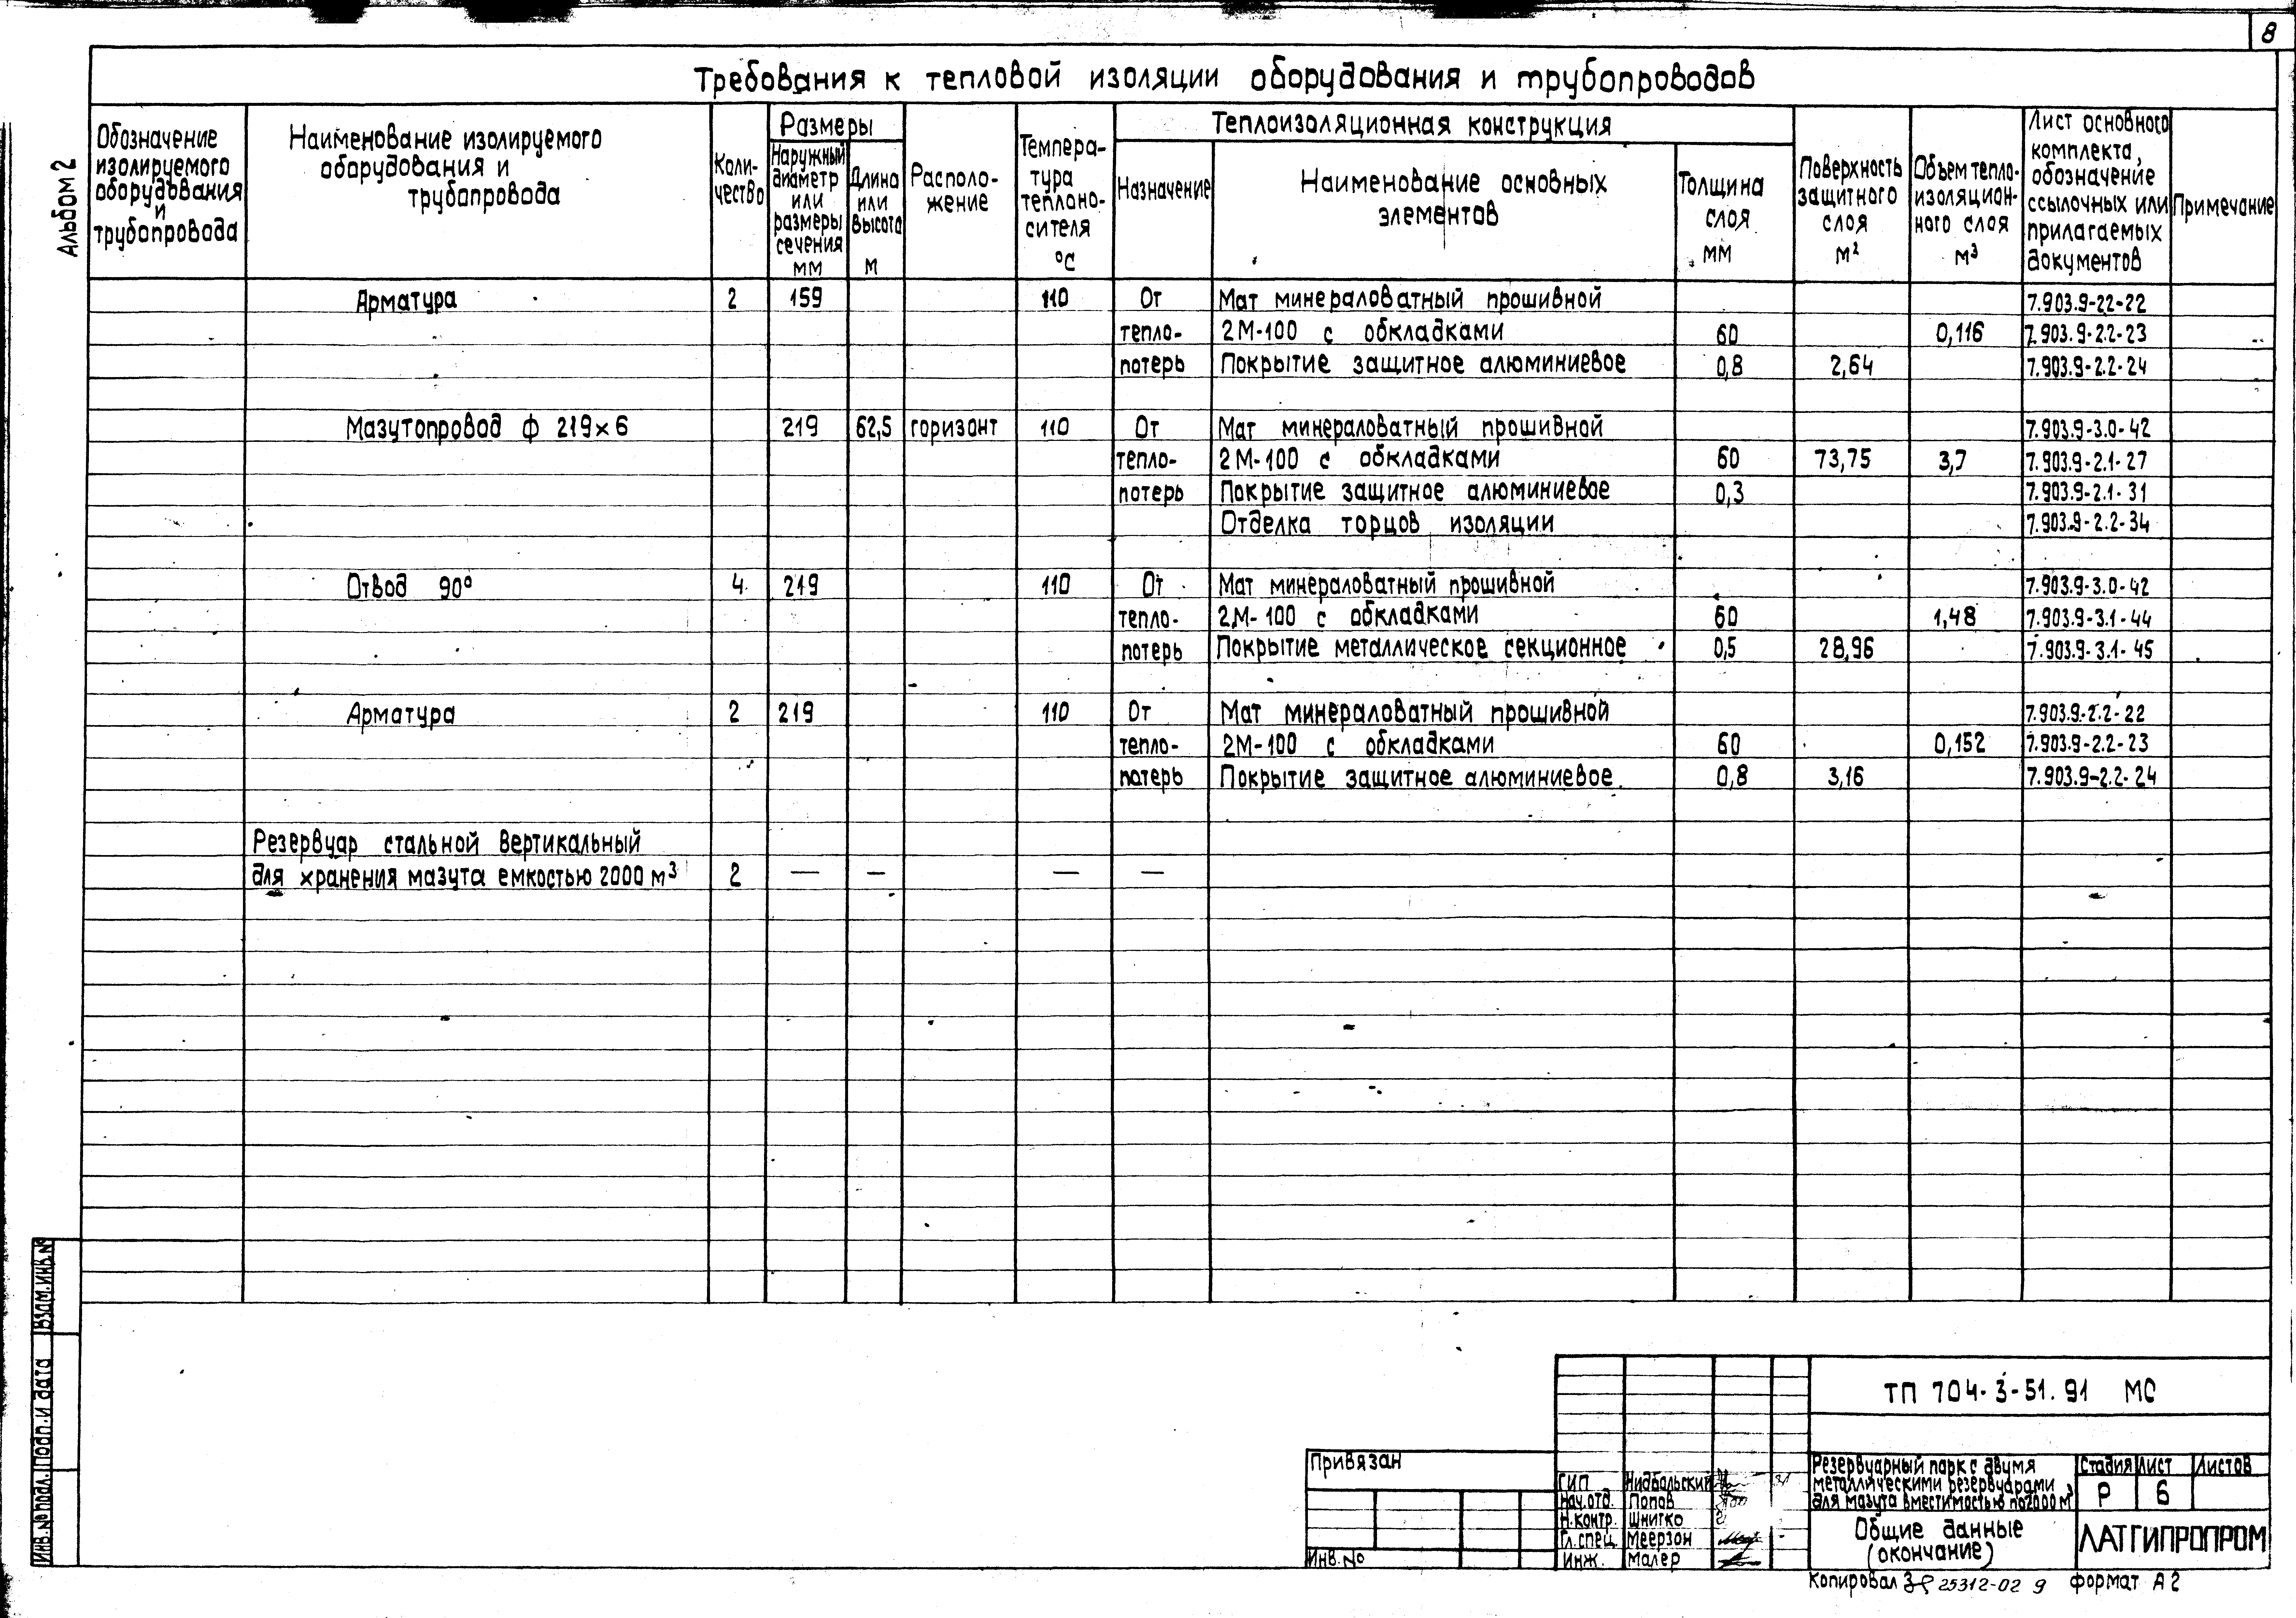 8
Требования к тепловой изоляции оборудования и трубопроводов
Альбом 2
Обозначение
изолируемого
оборудования
и
трубопровода
Наименование изолируемого
оборудования и
трубопровода
Коли-
чество
Размеры
Наружный
диаметр
или
размеры
сечения
мм
Длина
или
высота
м
Располо-
жение
Темпера-
тура
теплоно-
сителя
°С
Теплоизоляционная конструкция
Назначение
Наименование основных
элементов
Толщина
слоя
мм
Поверхность
защитного
слоя
м²
Объем тепло-
изоляцион-
ного слоя
м³
Лист основного
комплекта,
обозначение
ссылочных или
прилагаемых
документов
Примечание
Арматура 2 159 110 От Мат минераловатный прошивной 7.903.9-22-22
тепло- 2М-100 с обкладками 60 0,116 7.903.9-2.2-23
потерь Покрытие защитное алюминиевое 0,8 2,64 7.903.9-2.2-24
Мазутопровод ф 219×6 219 62,5 горизонт 110 От Мат минераловатный прошивной 7.903.9-3.0-42
тепло- 2М-100 с обкладками 60 73,75 3,7 7.903.9-2.1-27
потерь Покрытие защитное алюминиевое 0,3 7.903.9-2.1-31
Отделка торцов изоляции 7.903.9-2.2-34
Отвод 90° 4 219 110 От Мат минераловатный прошивной 7.903.9-3.0-42
тепло- 2М-100 с обкладками 60 1,48 7.903.9-3.1-44
потерь Покрытие металлическое секционное 0,5 28,96 7.903.9-3.1-45
Арматура 2 219 110 От Мат минераловатный прошивной 7.903.9-2.2-22
тепло- 2М-100 с обкладками 60 0,152 7.903.9-2.2-23
потерь Покрытие защитное алюминиевое. 0,8 3,16 7.903.9-2.2-24
Резервуар стальной вертикальный
для хранения мазута емкостью 2000 м³ 2 — — — —
Взам.инв.№
Подп.и дата
Инв.№подл.
ТП 704-3-51.91 МС
Привязан
Инв.№
ГИП Нидбальский
Нач.отд. Попов
Н.контр. Шнитко
Гл.спец. Меерзон
Инж. Малер
Резервуарный парк с двумя
металлическими резервуарами
для мазута вместимостью по 2000 м³
Стадия Лист Листов
Р 6
Общие данные
(окончание)
ЛАТГИПРОПРОМ
Копировал 25312-02 9 формат А2